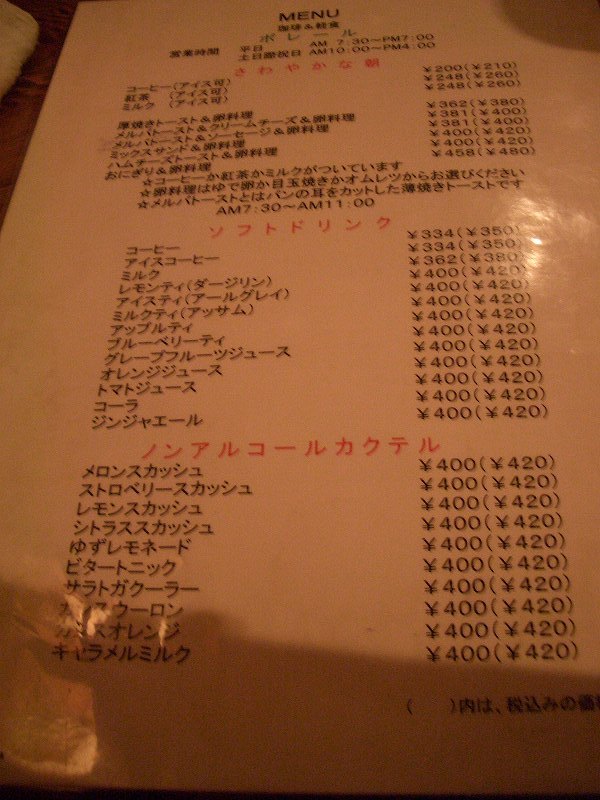 MENU
珈琲&軽食
ボレール
営業時間 平日 AM 7:30~PM7:00
土日際祝日 AM10:00~PM4:00
さわやかな朝
コーヒー(アイス可) ¥200(¥210)
紅茶 (アイス可) ¥248(¥260)
ミルク (アイス可) ¥248(¥260)
厚焼きトースト&卵料理 ¥362(¥380)
メルバトースト&クリームチーズ&卵料理 ¥381(¥400)
メルバトースト&ソーセージ&卵料理 ¥381(¥400)
ミックスサンド&卵料理 ¥400(¥420)
ハムチーズトースト&卵料理 ¥400(¥420)
おにぎり&卵料理 ¥458(¥480)
☆コーヒーか紅茶かミルクがついています
☆卵料理はゆで卵か目玉焼きかオムレツからお選びください
☆メルバトーストとはパンの耳をカットした薄焼きトーストです
AM7:30~AM11:00
ソフトドリンク
コーヒー ¥334(¥350)
アイスコーヒー ¥334(¥350)
ミルク ¥362(¥380)
レモンティ(ダージリン) ¥400(¥420)
アイスティ(アールグレイ) ¥400(¥420)
ミルクティ(アッサム) ¥400(¥420)
アップルティ ¥400(¥420)
ブルーベリーティ ¥400(¥420)
グレープフルーツジュース ¥400(¥420)
オレンジジュース ¥400(¥420)
トマトジュース ¥400(¥420)
コーラ ¥400(¥420)
ジンジャエール ¥400(¥420)
ノンアルコールカクテル
メロンスカッシュ ¥400(¥420)
ストロベリースカッシュ ¥400(¥420)
レモンスカッシュ ¥400(¥420)
シトラススカッシュ ¥400(¥420)
ゆずレモネード ¥400(¥420)
ビタートニック ¥400(¥420)
サラトガクーラー ¥400(¥420)
カシスウーロン ¥400(¥420)
カシスオレンジ ¥400(¥420)
キャラメルミルク ¥400(¥420)
( )内は、税込みの価